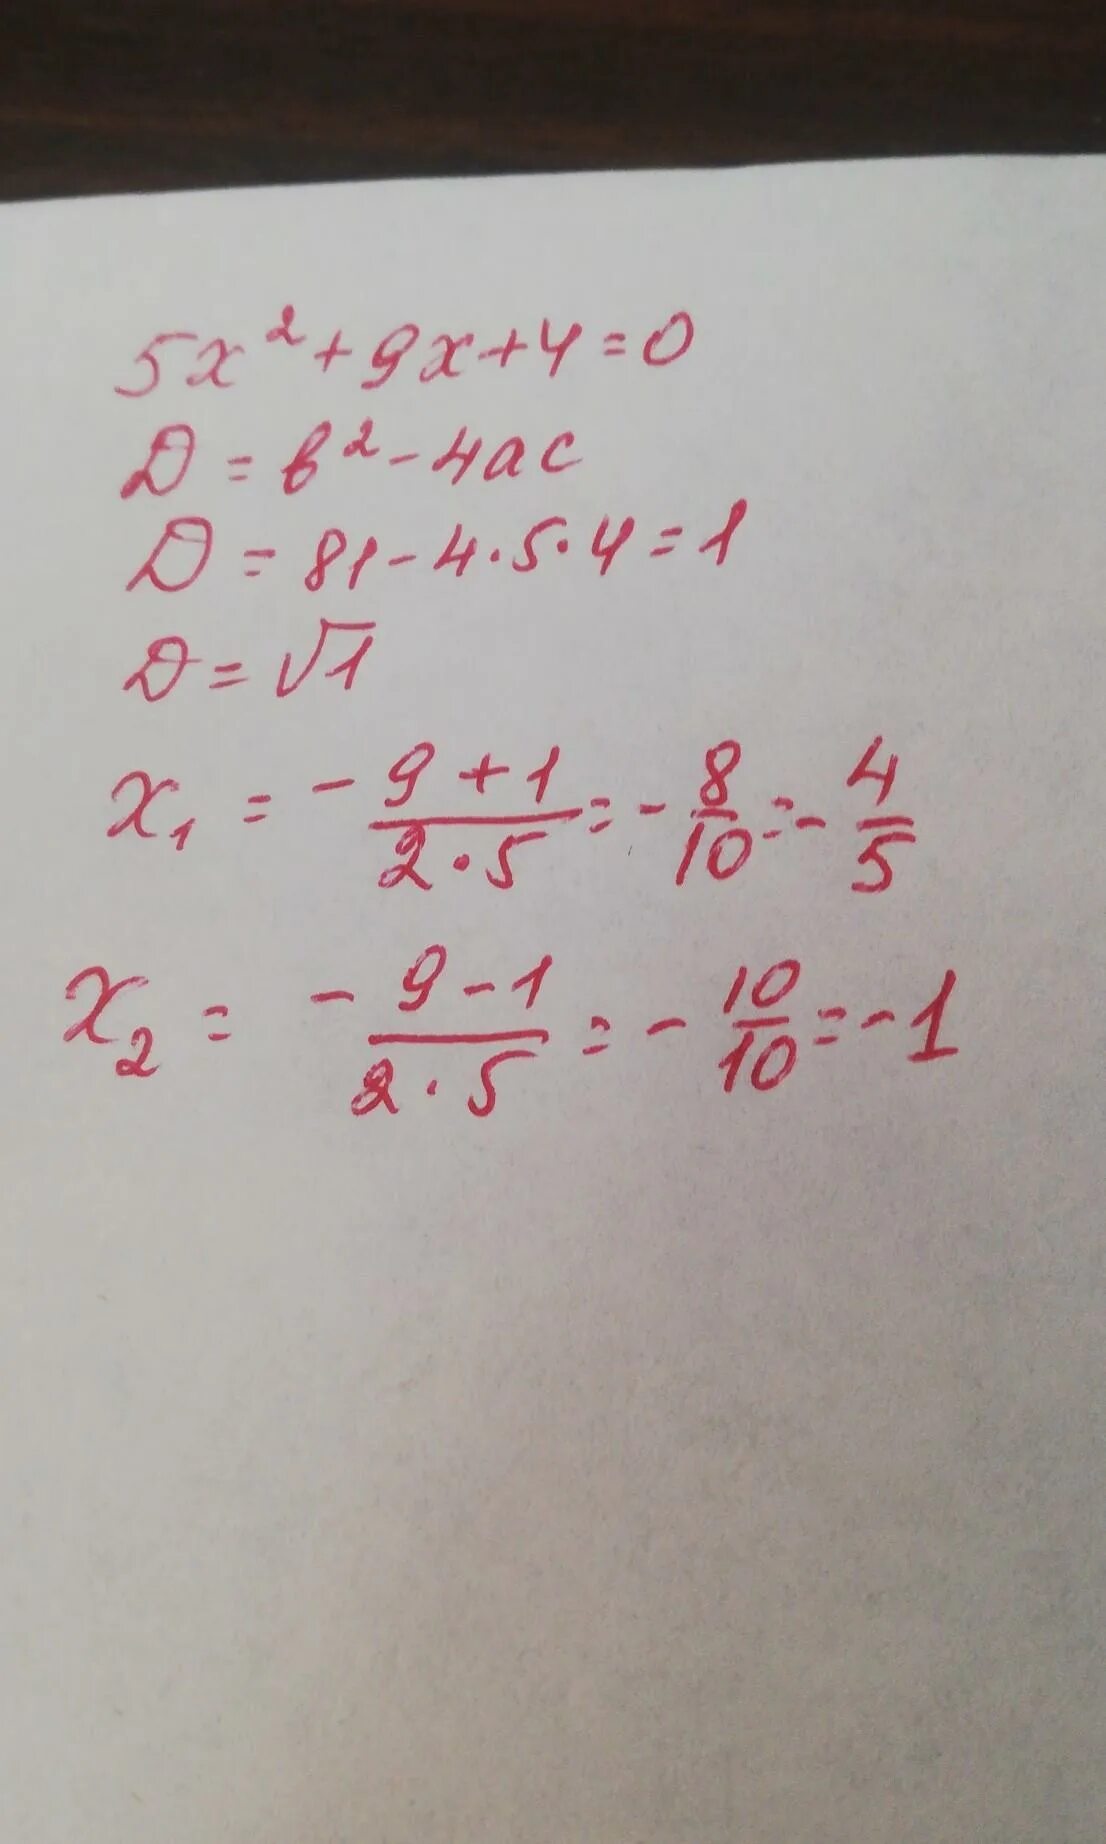 5x² + 9x + 4 = 0
D = в² - 4ac
D = 81 - 4·5·4 = 1
D = √1
x₁ = -(9 + 1)/(2·5) = -8/10 = -4/5
x₂ = -(9 - 1)/(2·5) = -10/10 = -1